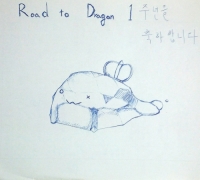 Road to Dragon 1주년을
축하합니다